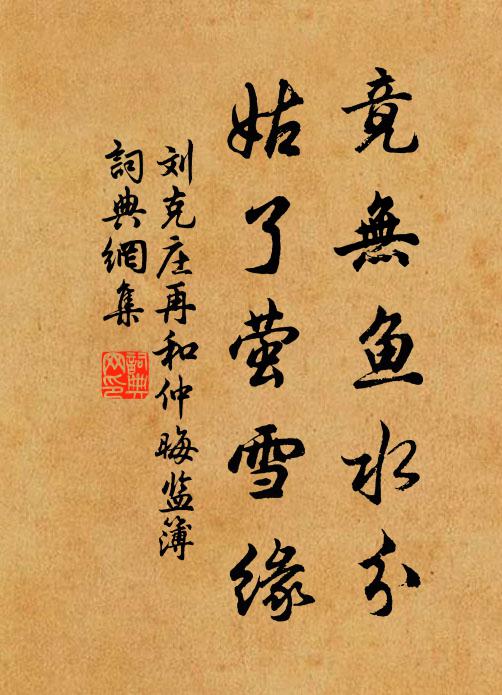 竟無鱼水分
姑了萤雪缘
刘克庄再和仲晦监簿
詞典網集
詞典网印